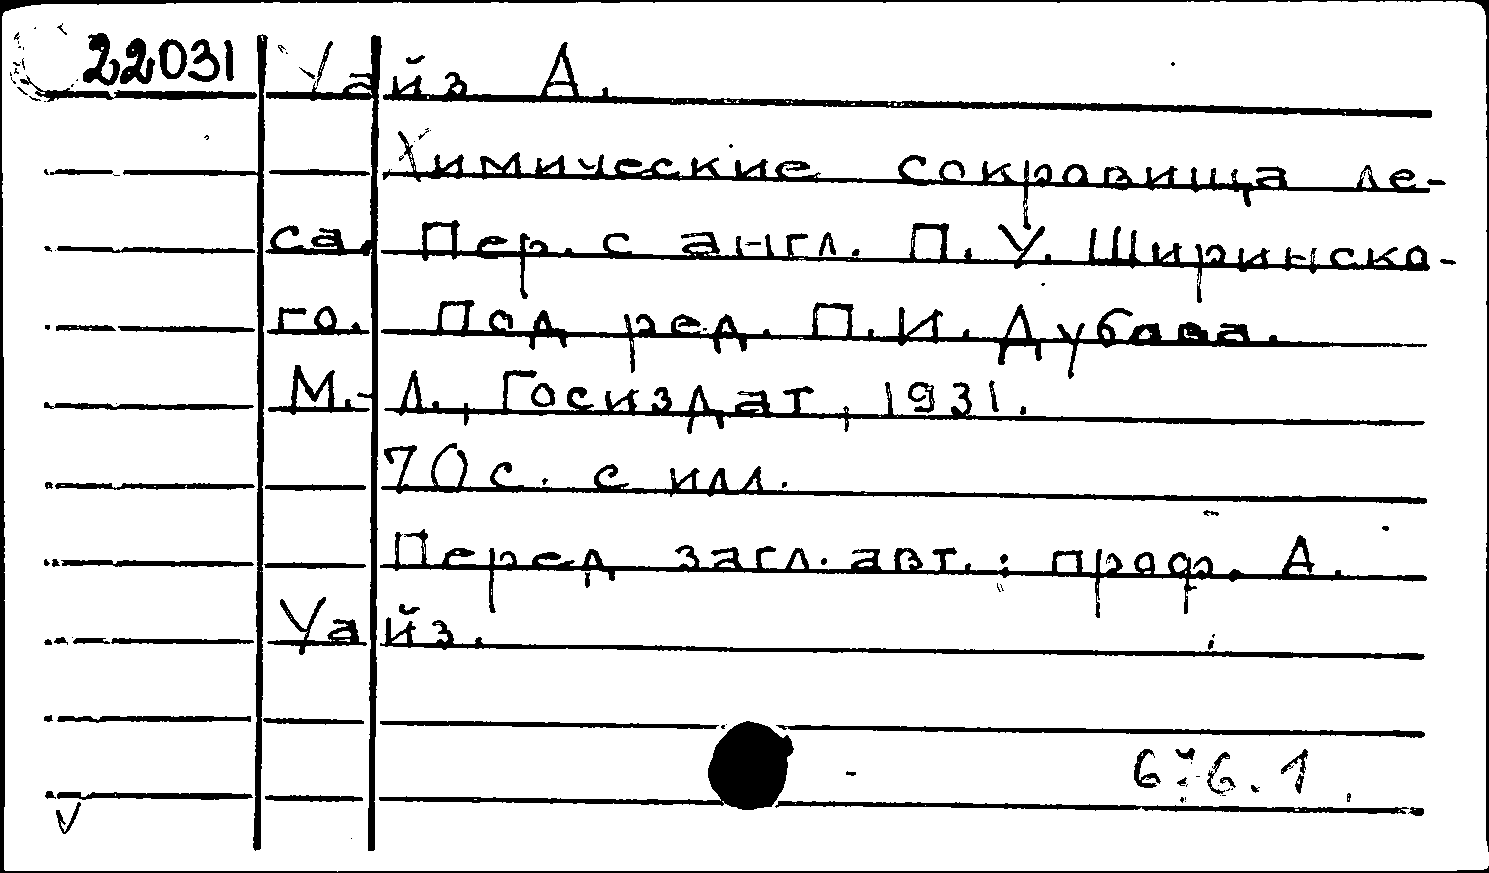 22031 Уайз А.
Химические сокровища ле-
са. Пер. с англ. П. У. Ширинско-
го. Под ред. П. И. Дубова.
М.-Л., Госиздат, 1931.
70 с. с илл.
Перед загл. авт.: проф. А.
Уайз.
6.1